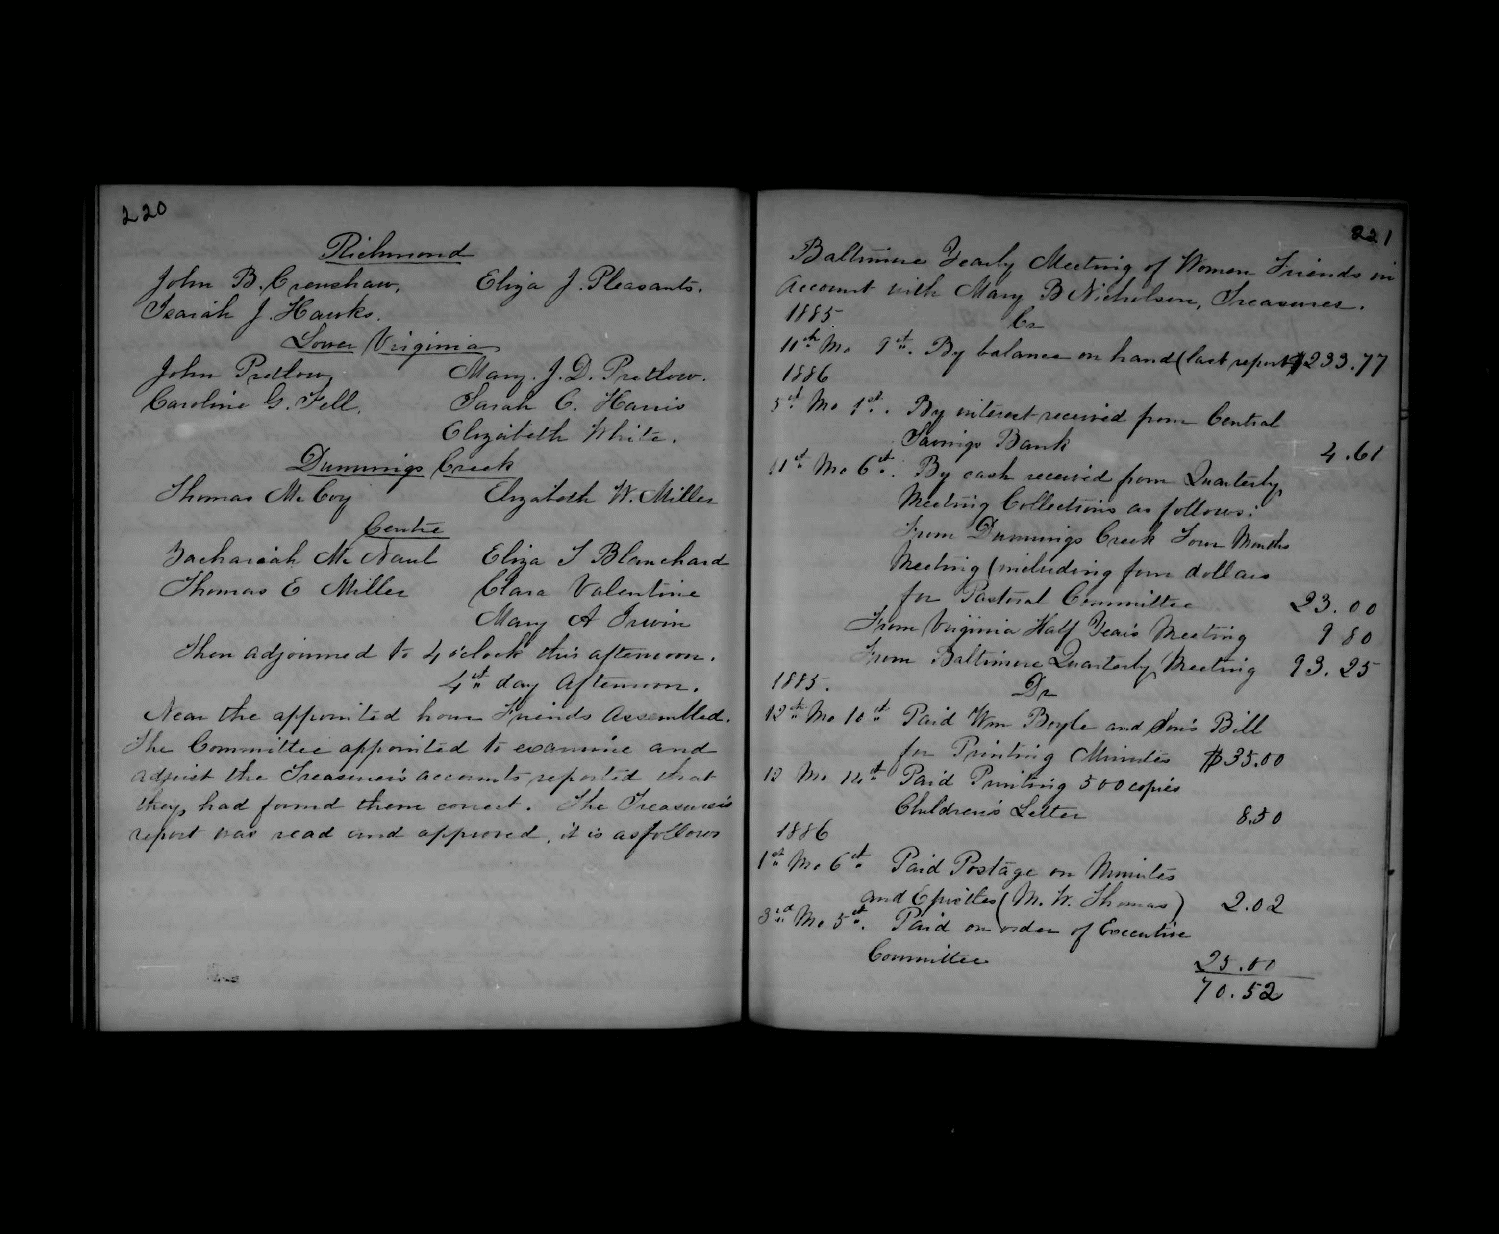 220
Richmond
John B. Crenshaw, Eliza J. Pleasants.
Isaiah J. Hawks.
Lower Virginia
John Pretlow, Mary. J. D. Pretlow.
Caroline G. Fell, Sarah C. Harris
Elizabeth White.
Dunnings Creek
Thomas McCoy Elizabeth W. Miller
Centre
Zachariah McNaul Eliza T Blanchard
Thomas E Miller Clara Valentine
Mary A Irwin
Then adjourned to 4 o'clock this afternoon.
4th day Afternoon.
Near the appointed hour Friends Assembled.
The Committee appointed to examine and
adjust the Treasurer's accounts, reported that
they had found them correct. The Treasurer's
report was read and approved, it is as follows
221
Baltimore Yearly Meeting of Women Friends in
Account with Mary B Nicholson, Treasurer.
1885 Cr
11th Mo 9th. By balance on hand (last report) $233.77
1886
5th Mo 1st. By interest received from Central
Savings Bank 4.61
11th Mo 6th. By cash received from Quarterly
Meeting Collections as follows:
From Dunnings Creek Four Months
Meeting (including four dollars
for Pastoral Committee 23.00
From Virginia Half Year's Meeting 9 80
From Baltimore Quarterly Meeting 93.25
1885. Dr
12th Mo 10th Paid Wm Boyle and Son's Bill
for Printing Minutes $35.00
12 Mo 14th Paid Printing 500 copies
Children's Letter 8.50
1886
1st Mo 6th Paid Postage on Minutes
and Epistles (M. W. Thomas) 2.02
3rd Mo 5th. Paid on order of Executive
Committee 25.00
70.52